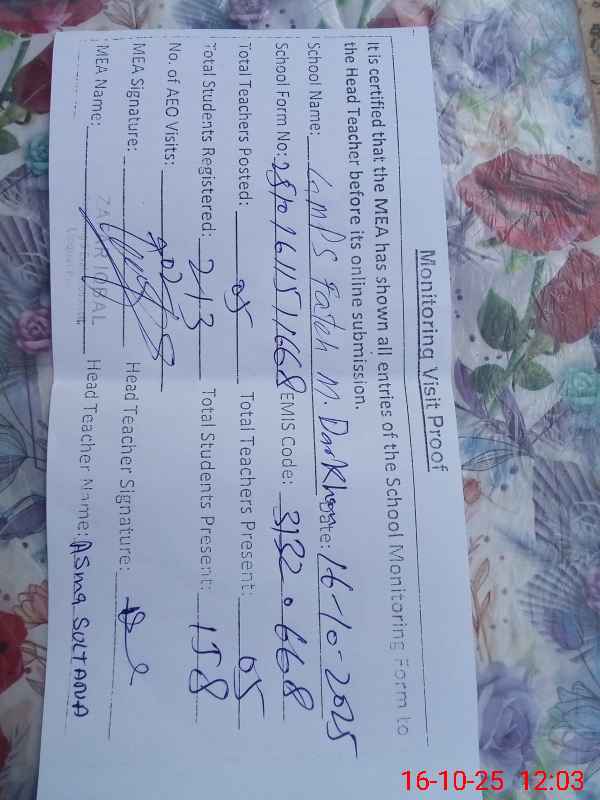 Monitoring Visit Proof
It is certified that the MEA has shown all entries of the School Monitoring Form to
the Head Teacher before its online submission.
School Name: GMPS Fateh M. Darkhan Date: 16-10-2025
School Form No: EMIS Code: 31320668
Total Teachers Posted: 05 Total Teachers Present: 05
Total Students Registered: 213 Total Students Present: 158
No. of AEO Visits:
MEA Signature: Head Teacher Signature:
MEA Name: ZAFAR IQBAL Head Teacher Name: ASma SULTANA
16-10-25 12:03